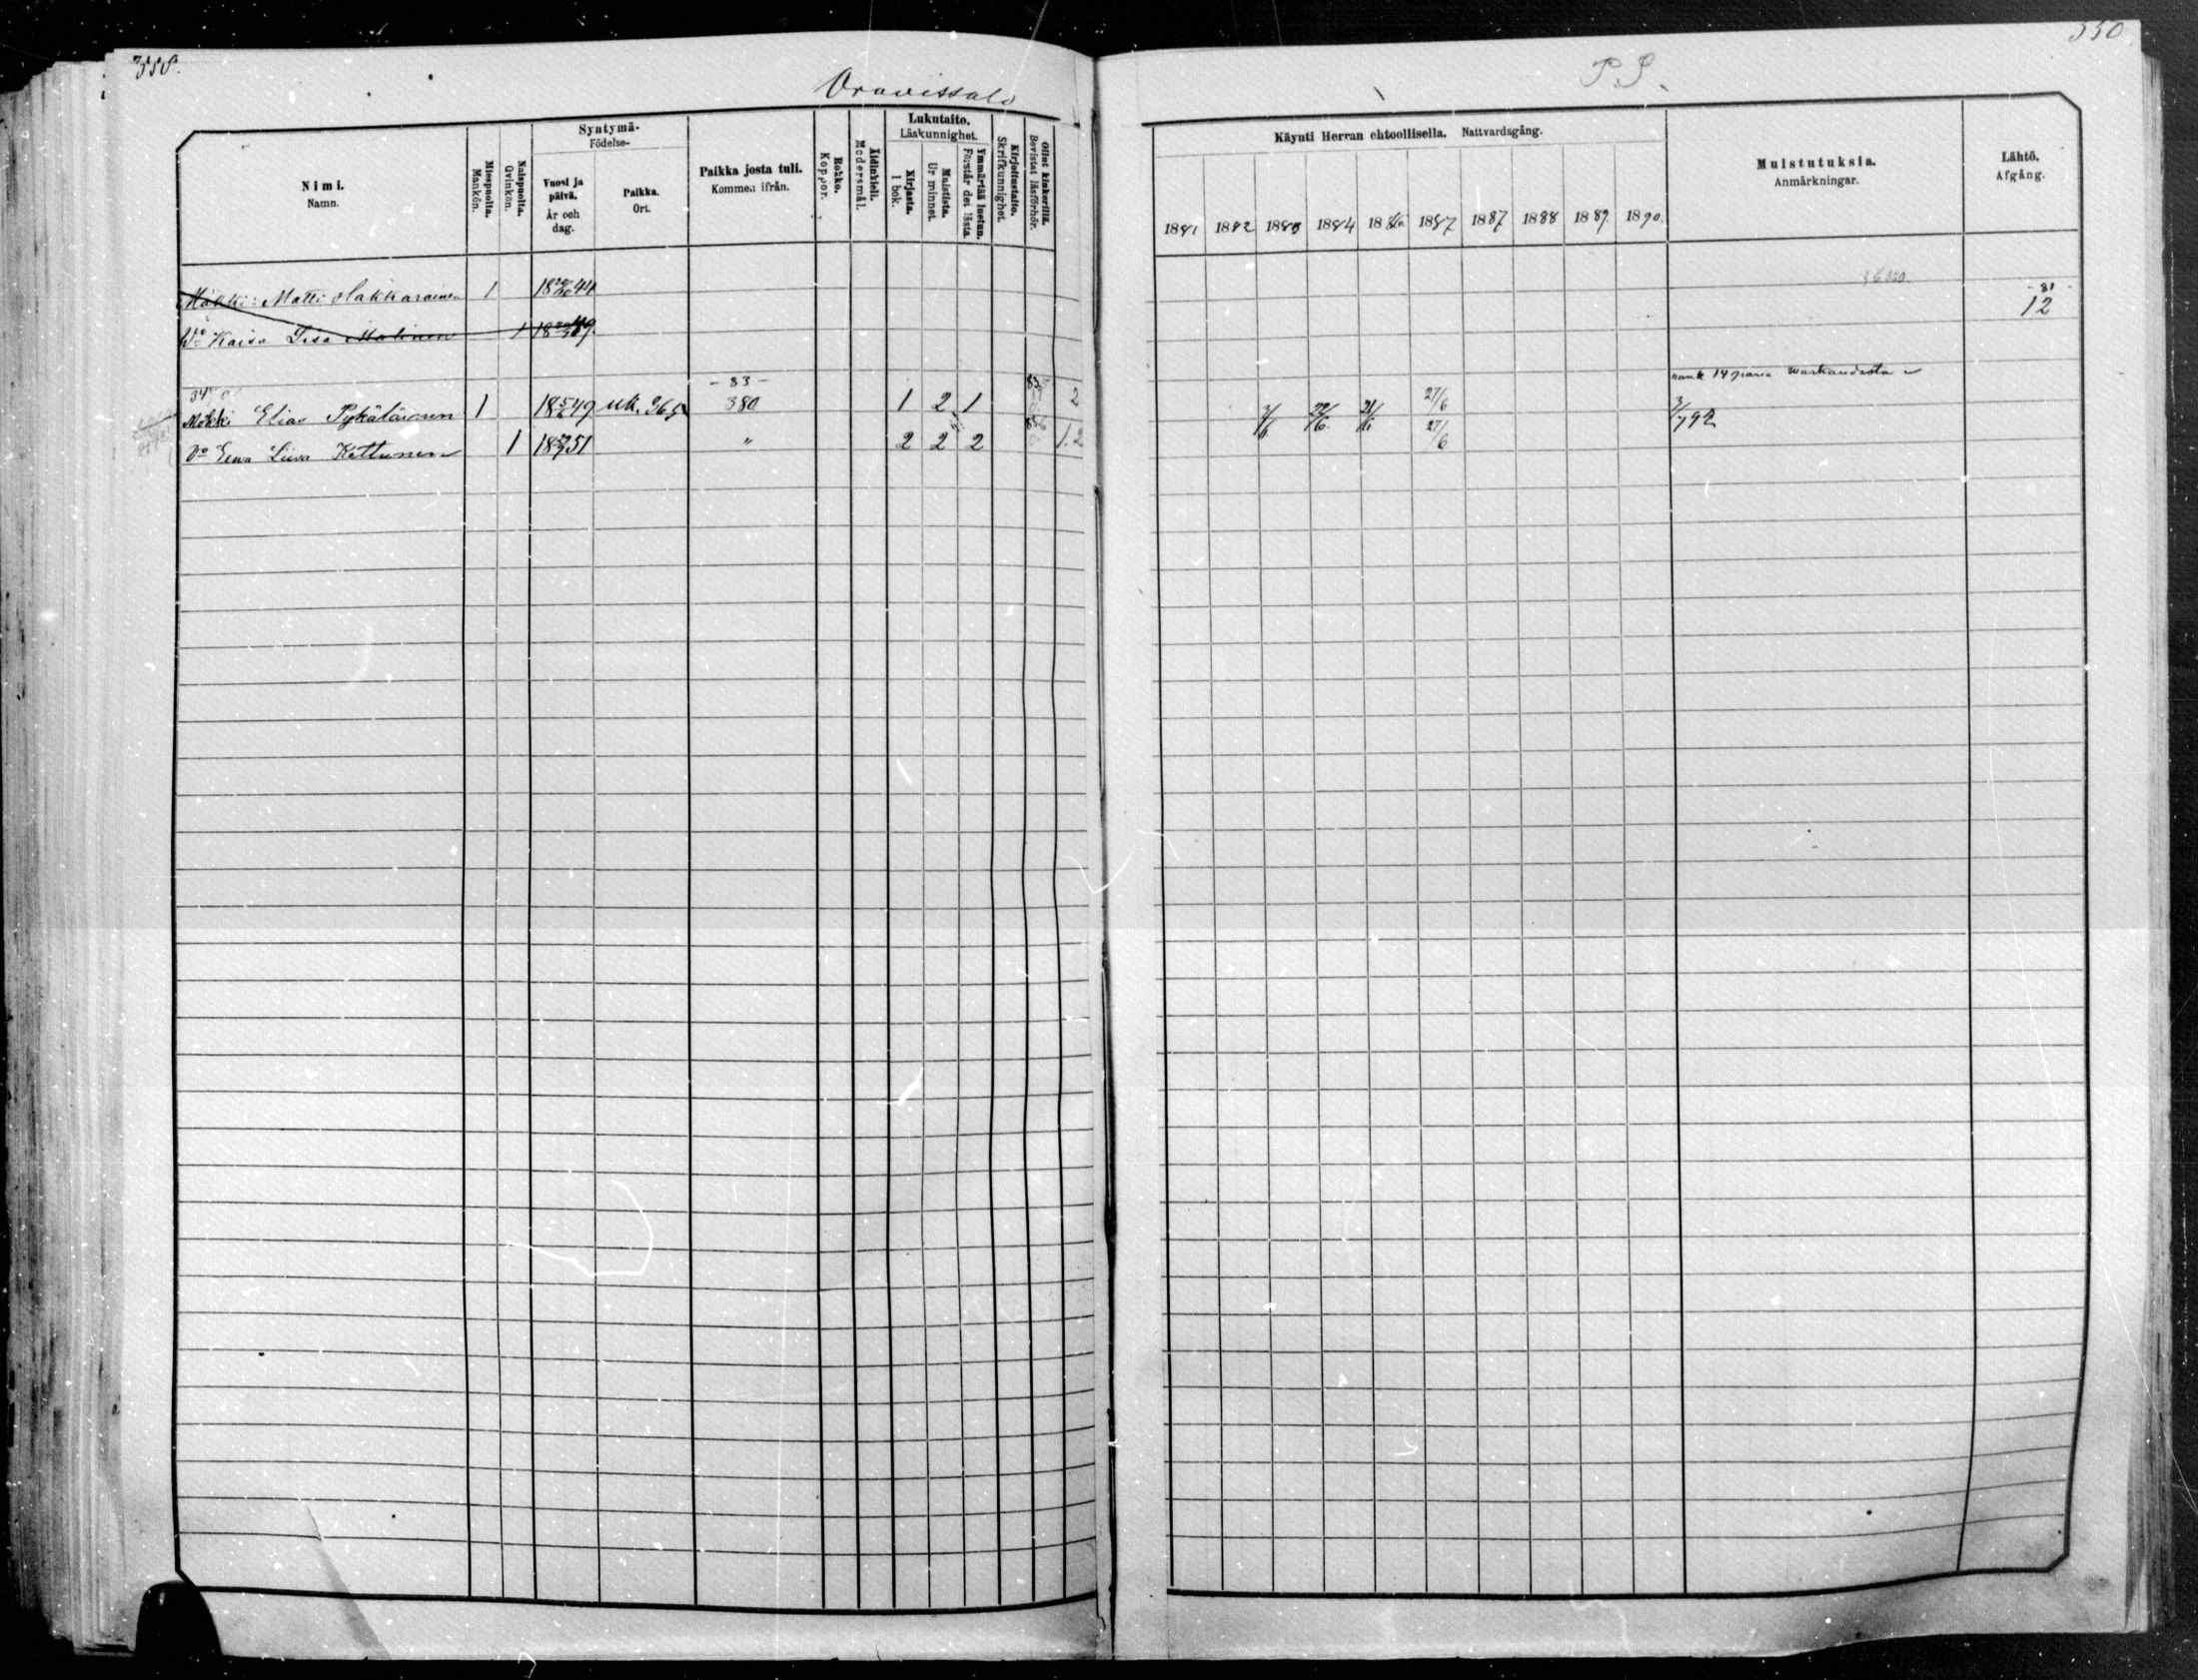 358.
Oravissalo
Nimi.
Namn.
Miespuolta.
Mankön.
Naispuolta.
Qvinkön.
Syntymä-
Födelse-
Vuosi ja päivä.
År och dag.
Paikka.
Ort.
Paikka josta tuli.
Kommen ifrån.
Rokko.
Koppor.
Äidinkieli.
Modersmål.
Lukutaito.
Läskunnighet.
Kirjasta.
I bok.
Muistista.
Ur minnet.
Ymmärtää luetun.
Förstår det lästa.
Kirjoitustaito.
Skrifkunnighet.
Ollut kinkerillä.
Bevistat läsförhör.
Mökki: Matti Hakkarainen 1 18 44
Vo Kaisa Lisa Malinen 1 18 49.
Mökki Elias Pykäläinen 1 18 5/6 49 Uk. 265 -83- 380 1 2 1 2
Vo Eewa Liisa Kettunen 1 18 51 " 2 2 2 1.2
350
P.S.
Käynti Herran ehtoollisella. Nattvardsgång.
1881 1882 1883 1884 1886 1887 1887 1888 1889. 1890.
Muistutuksia.
Anmärkningar.
Lähtö.
Afgång.
-81
12
27/6
27/6
22/6.